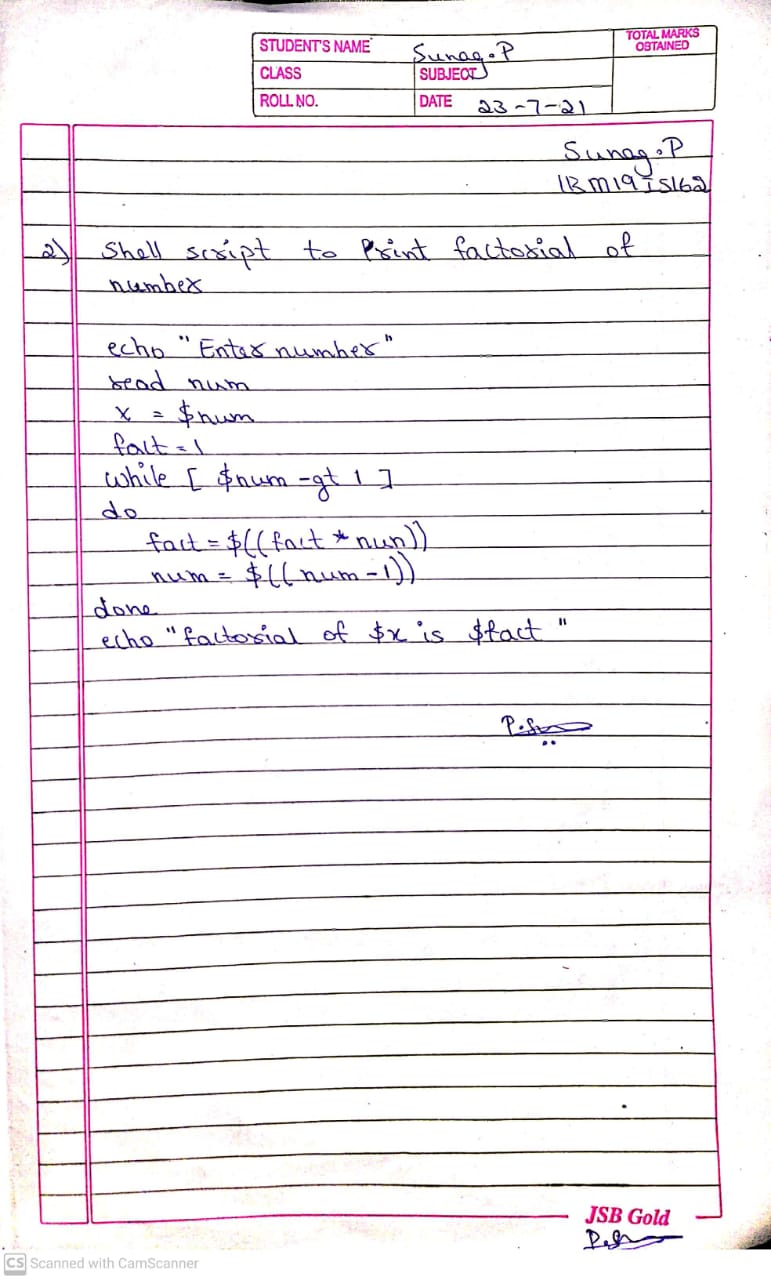 STUDENT'S NAME Sunag.P
TOTAL MARKS OBTAINED
CLASS SUBJECT
ROLL NO. DATE 23-7-21
Sunag.P
1BM19IS162
2) Shell script to Print factorial of
number
echo "Enter number"
read num
x = $num
fact = 1
while [ $num -gt 1 ]
do
fact = $((fact * nun))
num = $((num - 1))
done
echo "factorial of $x is $fact"
JSB Gold
CS Scanned with CamScanner